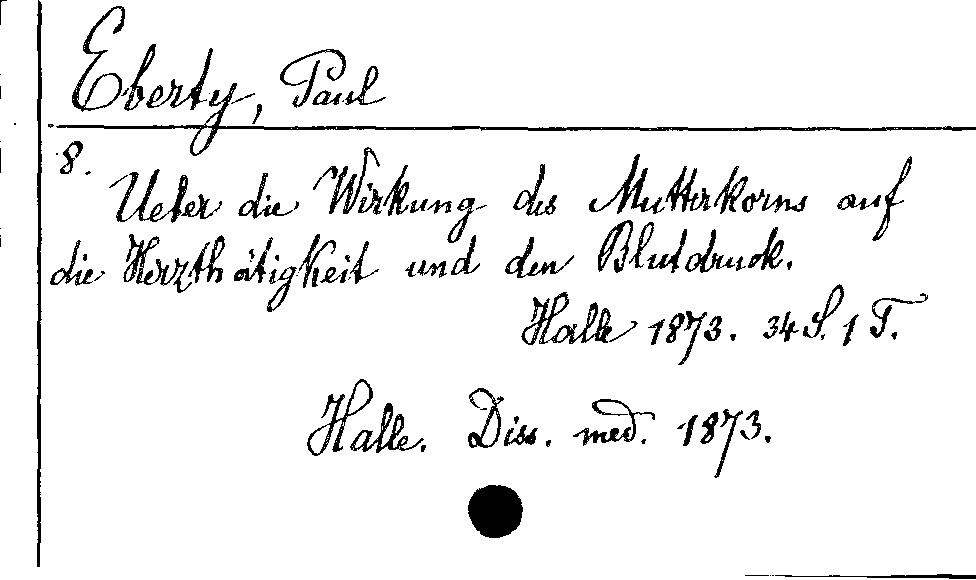 Eberty, Paul
8.
Ueber die Wirkung des Mutterkorns auf
die Herzthätigkeit und den Blutdruck.
Halle 1873. 34 S. 1 T.
Halle. Diss. med. 1873.